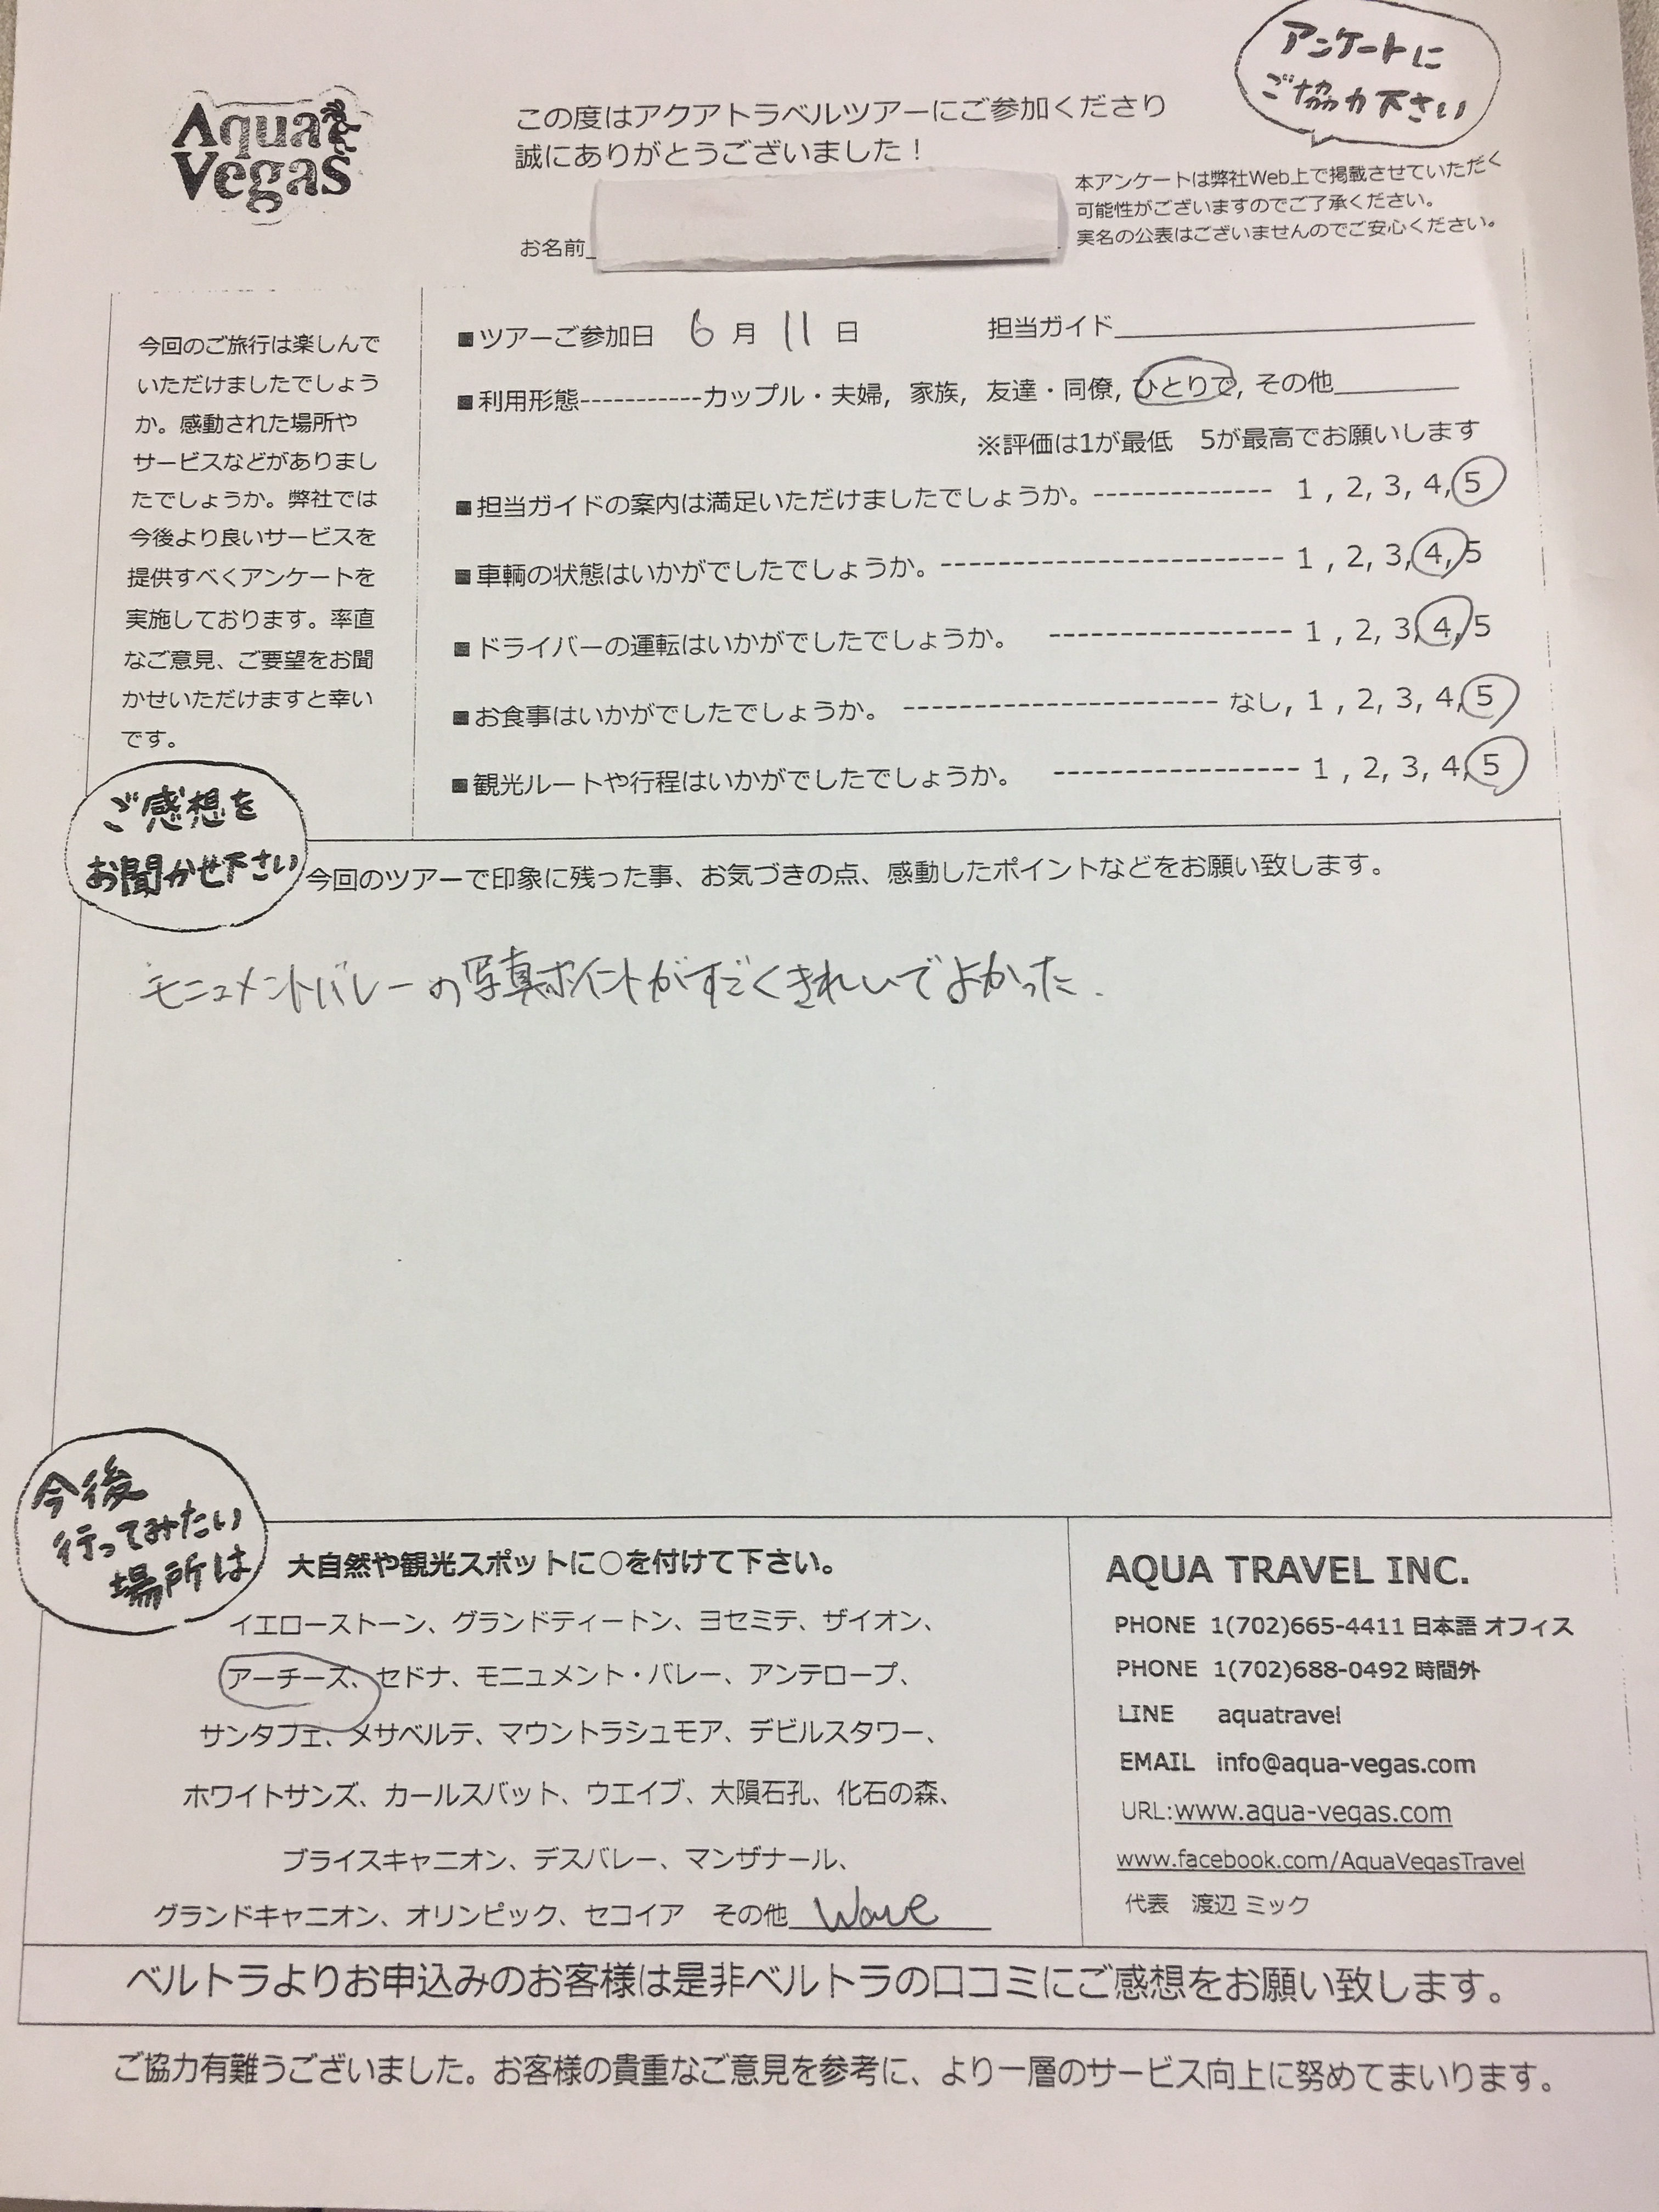 Aqua Vegas
この度はアクアトラベルツアーにご参加くださり
誠にありがとうございました！
アンケートに
ご協力下さい
本アンケートは弊社Web上で掲載させていただく
可能性がございますのでご了承ください。
実名の公表はございませんのでご安心ください。
お名前
今回のご旅行は楽しんで
いただけましたでしょう
か。感動された場所や
サービスなどがありまし
たでしょうか。弊社では
今後より良いサービスを
提供すべくアンケートを
実施しております。率直
なご意見、ご要望をお聞
かせいただけますと幸い
です。
■ツアーご参加日 6 月 11 日 担当ガイド
■利用形態-----------カップル・夫婦, 家族, 友達・同僚, ひとりで, その他
※評価は1が最低 5が最高でお願いします
■担当ガイドの案内は満足いただけましたでしょうか。-------------- 1 , 2, 3, 4, 5
■車輌の状態はいかがでしたでしょうか。--------------------------- 1 , 2, 3, 4, 5
■ドライバーの運転はいかがでしたでしょうか。 ------------------- 1 , 2, 3, 4, 5
■お食事はいかがでしたでしょうか。 ------------------------- なし, 1 , 2, 3, 4, 5
■観光ルートや行程はいかがでしたでしょうか。 ------------------- 1 , 2, 3, 4, 5
ご感想を
お聞かせ下さい
今回のツアーで印象に残った事、お気づきの点、感動したポイントなどをお願い致します。
モニュメントバレーの写真ポイントがすごくきれいでよかった.
今後
行ってみたい
場所は
大自然や観光スポットに○を付けて下さい。
イエローストーン、グランドティートン、ヨセミテ、ザイオン、
アーチーズ、セドナ、モニュメント・バレー、アンテロープ、
サンタフェ、メサベルテ、マウントラシュモア、デビルスタワー、
ホワイトサンズ、カールスバット、ウエイブ、大隕石孔、化石の森、
ブライスキャニオン、デスバレー、マンザナール、
グランドキャニオン、オリンピック、セコイア その他 Wave
AQUA TRAVEL INC.
PHONE 1(702)665-4411 日本語 オフィス
PHONE 1(702)688-0492 時間外
LINE aquatravel
EMAIL info@aqua-vegas.com
URL:www.aqua-vegas.com
www.facebook.com/AquaVegasTravel
代表 渡辺 ミック
ベルトラよりお申込みのお客様は是非ベルトラの口コミにご感想をお願い致します。
ご協力有難うございました。お客様の貴重なご意見を参考に、より一層のサービス向上に努めてまいります。